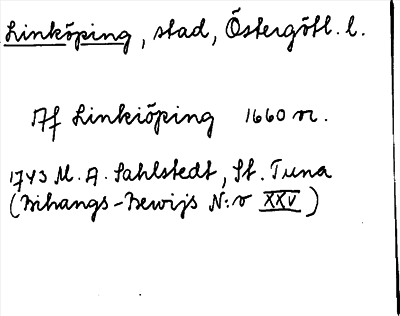 Linköping, stad, Östergötl. l.
Af Linkiöping 1660 n.
1743 M. A. Sahlstedt, St. Tuna
(Bihangs-Bewijs N:o XXV)